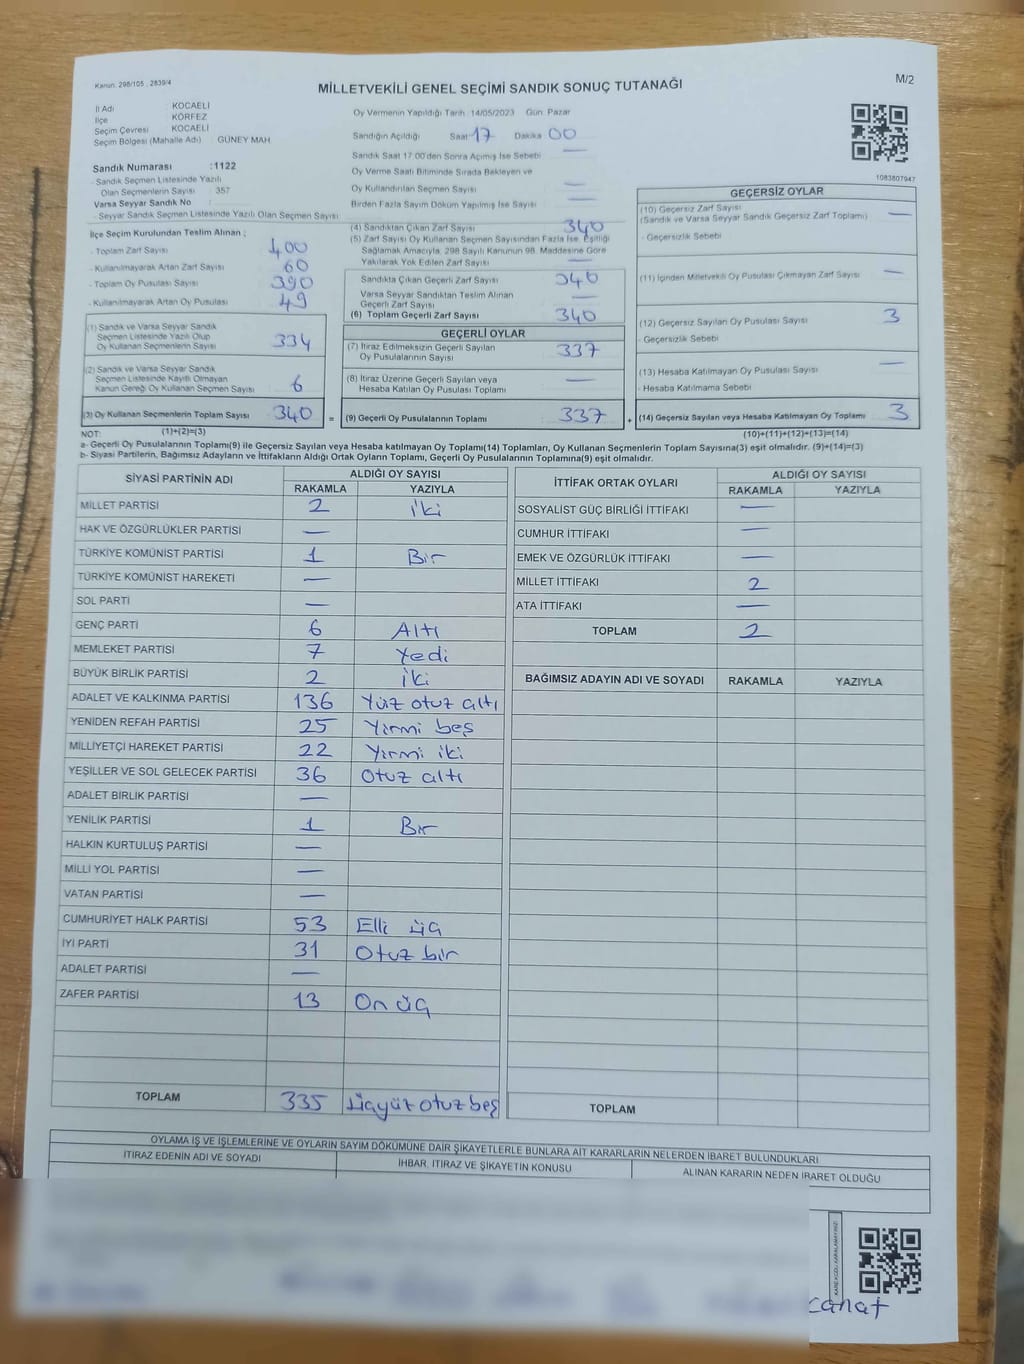 Kanun. 298/105 , 2839/4
MİLLETVEKİLİ GENEL SEÇİMİ SANDIK SONUÇ TUTANAĞI
M/2
İl Adı : KOCAELİ
İlçe : KÖRFEZ
Seçim Çevresi : KOCAELİ
Seçim Bölgesi (Mahalle Adı) : GÜNEY MAH
Sandık Numarası :1122
- Sandık Seçmen Listesinde Yazılı
Olan Seçmenlerin Sayısı : 357
Varsa Seyyar Sandık No :
- Seyyar Sandık Seçmen Listesinde Yazılı Olan Seçmen Sayısı :
İlçe Seçim Kurulundan Teslim Alınan ;
- Toplam Zarf Sayısı : 400
- Kullanılmayarak Artan Zarf Sayısı : 60
- Toplam Oy Pusulası Sayısı : 390
- Kullanılmayarak Artan Oy Pusulası : 49
(1) Sandık ve Varsa Seyyar Sandık
Seçmen Listesinde Yazılı Olup
Oy Kullanan Seçmenlerin Sayısı : 334
(2) Sandık ve Varsa Seyyar Sandık
Seçmen Listesinde Kayıtlı Olmayan
Kanun Gereği Oy Kullanan Seçmen Sayısı : 6
(3) Oy Kullanan Seçmenlerin Toplam Sayısı : 340
(1)+(2)=(3)
Oy Vermenin Yapıldığı Tarih :14/05/2023 Gün: Pazar
Sandığın Açıldığı Saat 17 Dakika 00
Sandık Saat 17:00'den Sonra Açılmış İse Sebebi : —
Oy Verme Saati Bitiminde Sırada Bekleyen ve
Oy Kullandırılan Seçmen Sayısı : —
Birden Fazla Sayım Döküm Yapılmış İse Sayısı : —
(4) Sandıktan Çıkan Zarf Sayısı : 340
(5) Zarf Sayısı Oy Kullanan Seçmen Sayısından Fazla İse, Eşitliği
Sağlamak Amacıyla, 298 Sayılı Kanunun 98. Maddesine Göre
Yakılarak Yok Edilen Zarf Sayısı : —
Sandıkta Çıkan Geçerli Zarf Sayısı : 340
Varsa Seyyar Sandıktan Teslim Alınan
Geçerli Zarf Sayısı : —
(6) Toplam Geçerli Zarf Sayısı : 340
GEÇERLİ OYLAR
(7) İtiraz Edilmeksizin Geçerli Sayılan
Oy Pusulalarının Sayısı : 337
(8) İtiraz Üzerine Geçerli Sayılan veya
Hesaba Katılan Oy Pusulası Toplamı : —
= (9) Geçerli Oy Pusulalarının Toplamı : 337
1083807947
GEÇERSİZ OYLAR
(10) Geçersiz Zarf Sayısı : —
(Sandık ve Varsa Seyyar Sandık Geçersiz Zarf Toplamı)
- Geçersizlik Sebebi :
(11) İçinden Milletvekili Oy Pusulası Çıkmayan Zarf Sayısı : —
(12) Geçersiz Sayılan Oy Pusulası Sayısı : 3
- Geçersizlik Sebebi :
(13) Hesaba Katılmayan Oy Pusulası Sayısı : —
- Hesaba Katılmama Sebebi :
+ (14) Geçersiz Sayılan veya Hesaba Katılmayan Oy Toplamı : 3
(10)+(11)+(12)+(13)=(14)
NOT:
a- Geçerli Oy Pusulalarının Toplamı(9) ile Geçersiz Sayılan veya Hesaba katılmayan Oy Toplamı(14) Toplamları, Oy Kullanan Seçmenlerin Toplam Sayısına(3) eşit olmalıdır. (9)+(14)=(3)
b- Siyasi Partilerin, Bağımsız Adayların ve İttifakların Aldığı Ortak Oyların Toplamı, Geçerli Oy Pusulalarının Toplamına(9) eşit olmalıdır.
SİYASİ PARTİNİN ADI ALDIĞI OY SAYISI
RAKAMLA YAZIYLA
MİLLET PARTİSİ 2 iki
HAK VE ÖZGÜRLÜKLER PARTİSİ —
TÜRKİYE KOMÜNİST PARTİSİ 1 Bir
TÜRKİYE KOMÜNİST HAREKETİ —
SOL PARTİ —
GENÇ PARTİ 6 Altı
MEMLEKET PARTİSİ 7 Yedi
BÜYÜK BİRLİK PARTİSİ 2 iki
ADALET VE KALKINMA PARTİSİ 136 Yüz otuz altı
YENİDEN REFAH PARTİSİ 25 Yirmi beş
MİLLİYETÇİ HAREKET PARTİSİ 22 Yirmi iki
YEŞİLLER VE SOL GELECEK PARTİSİ 36 Otuz altı
ADALET BİRLİK PARTİSİ —
YENİLİK PARTİSİ 1 Bir
HALKIN KURTULUŞ PARTİSİ —
MİLLİ YOL PARTİSİ —
VATAN PARTİSİ —
CUMHURİYET HALK PARTİSİ 53 Elli üç
İYİ PARTİ 31 Otuz bir
ADALET PARTİSİ —
ZAFER PARTİSİ 13 On üç
TOPLAM 335 üçyüz otuz beş
İTTİFAK ORTAK OYLARI ALDIĞI OY SAYISI
RAKAMLA YAZIYLA
SOSYALİST GÜÇ BİRLİĞİ İTTİFAKI —
CUMHUR İTTİFAKI —
EMEK VE ÖZGÜRLÜK İTTİFAKI —
MİLLET İTTİFAKI 2
ATA İTTİFAKI —
TOPLAM 2
BAĞIMSIZ ADAYIN ADI VE SOYADI RAKAMLA YAZIYLA
TOPLAM
OYLAMA İŞ VE İŞLEMLERİNE VE OYLARIN SAYIM DÖKÜMÜNE DAİR ŞİKAYETLERLE BUNLARA AİT KARARLARIN NELERDEN İBARET BULUNDUKLARI
İTİRAZ EDENİN ADI VE SOYADI İHBAR, İTİRAZ VE ŞİKAYETİN KONUSU ALINAN KARARIN NEDEN İBARET OLDUĞU
KAREKODU KARALAMAYINIZ!
canat